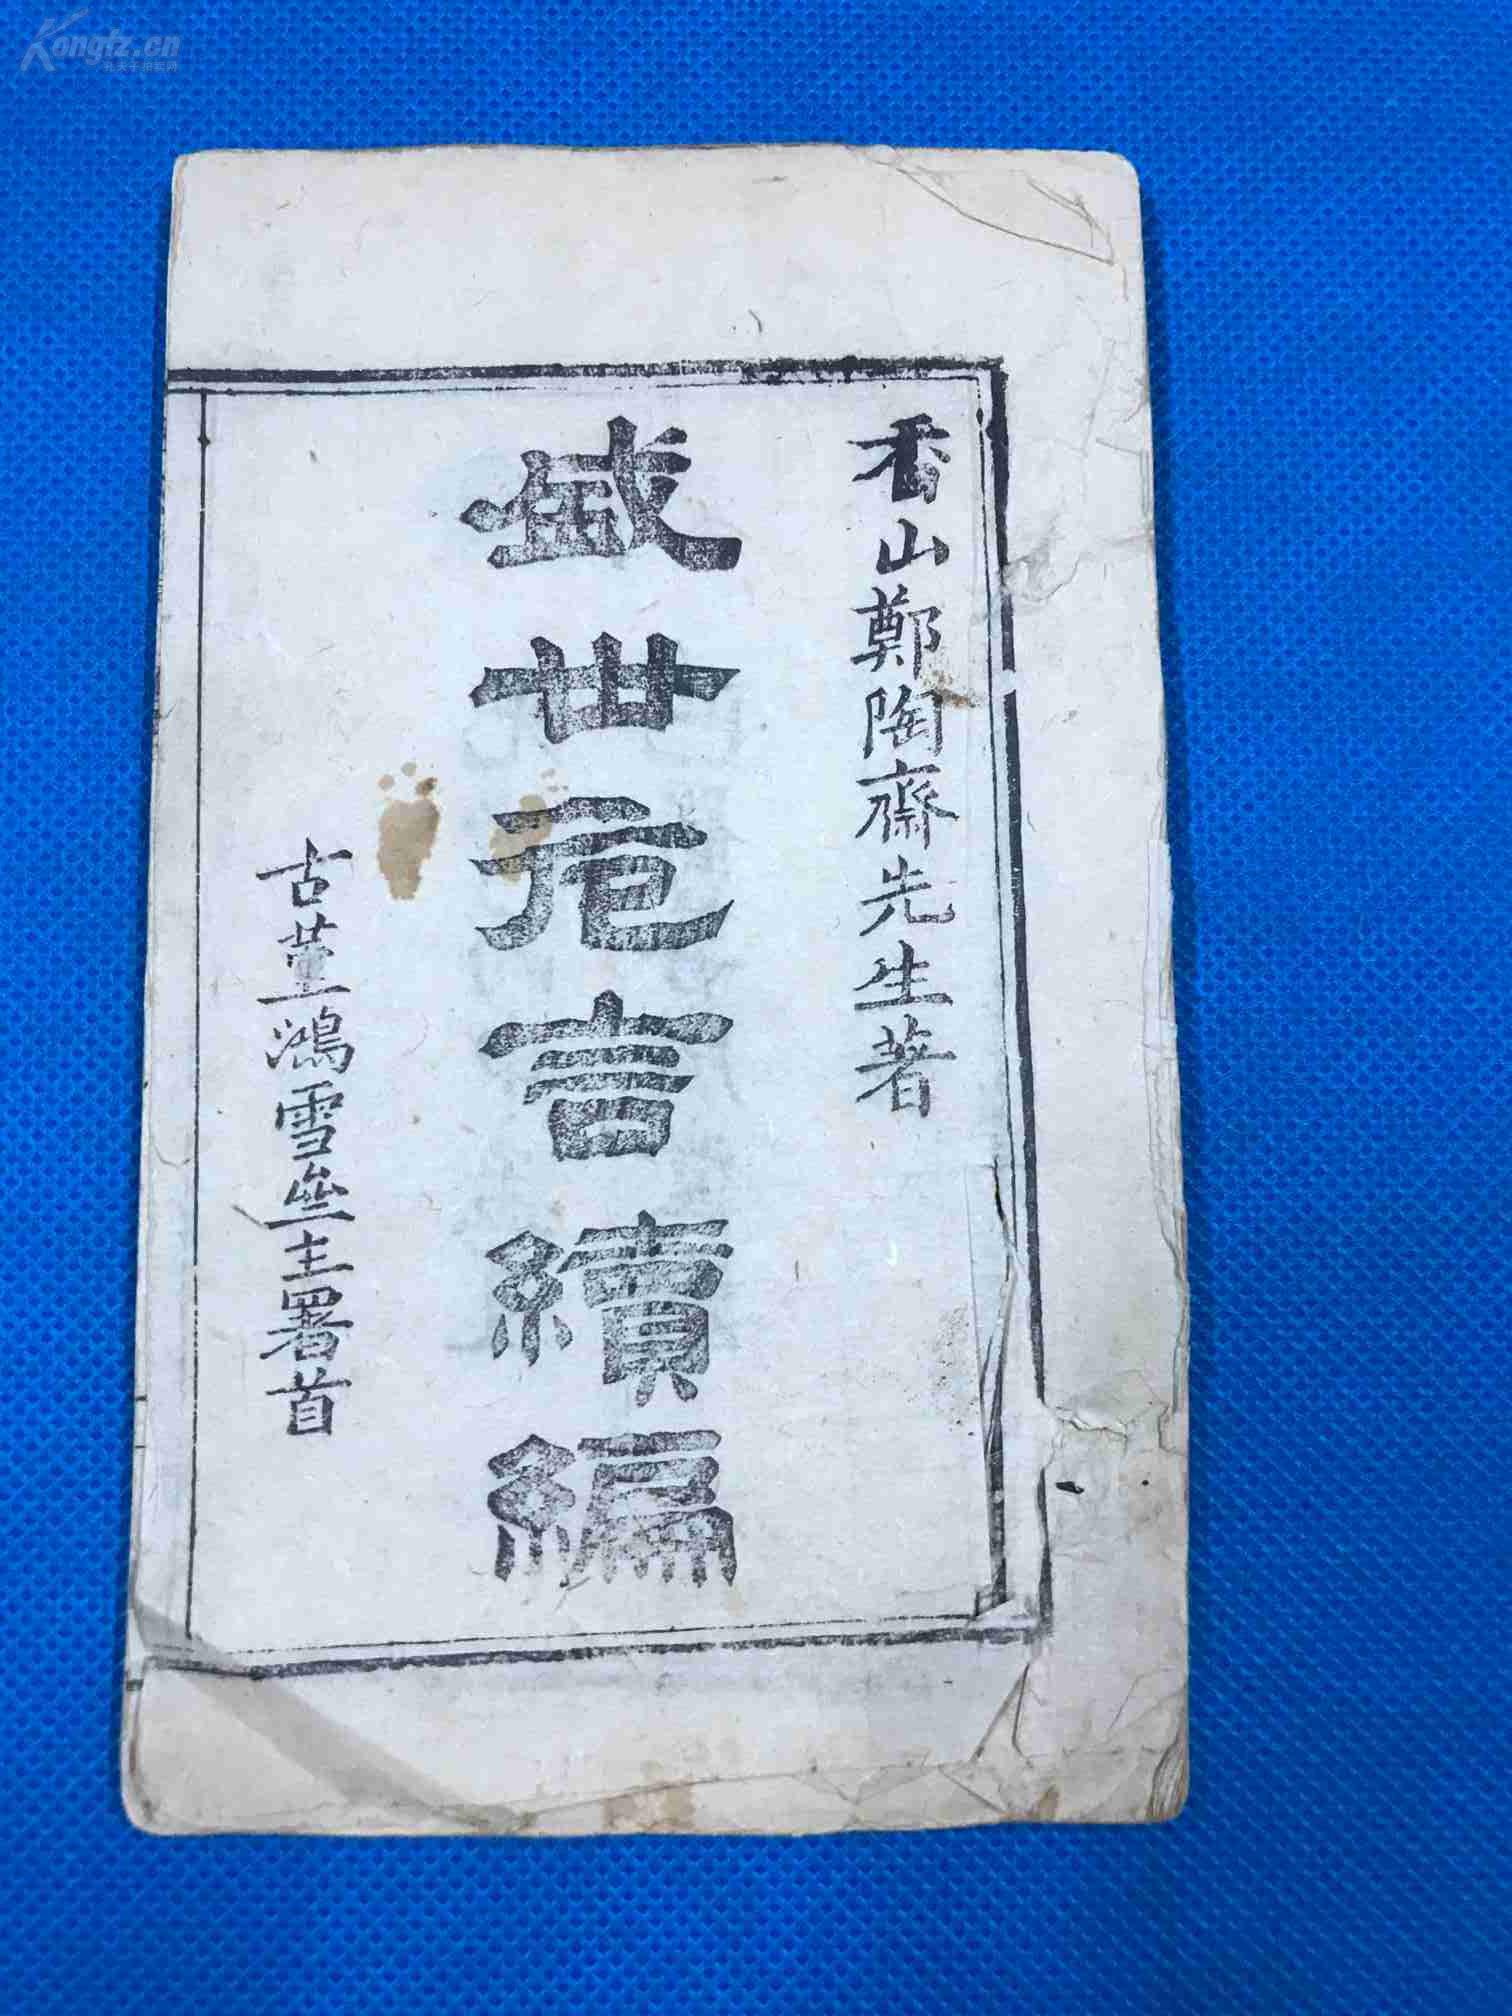 香山鄭陶齋先生著
盛世危言續編
古堇鴻雪坐主署首
Kongfz.cn
孔夫子拍卖网